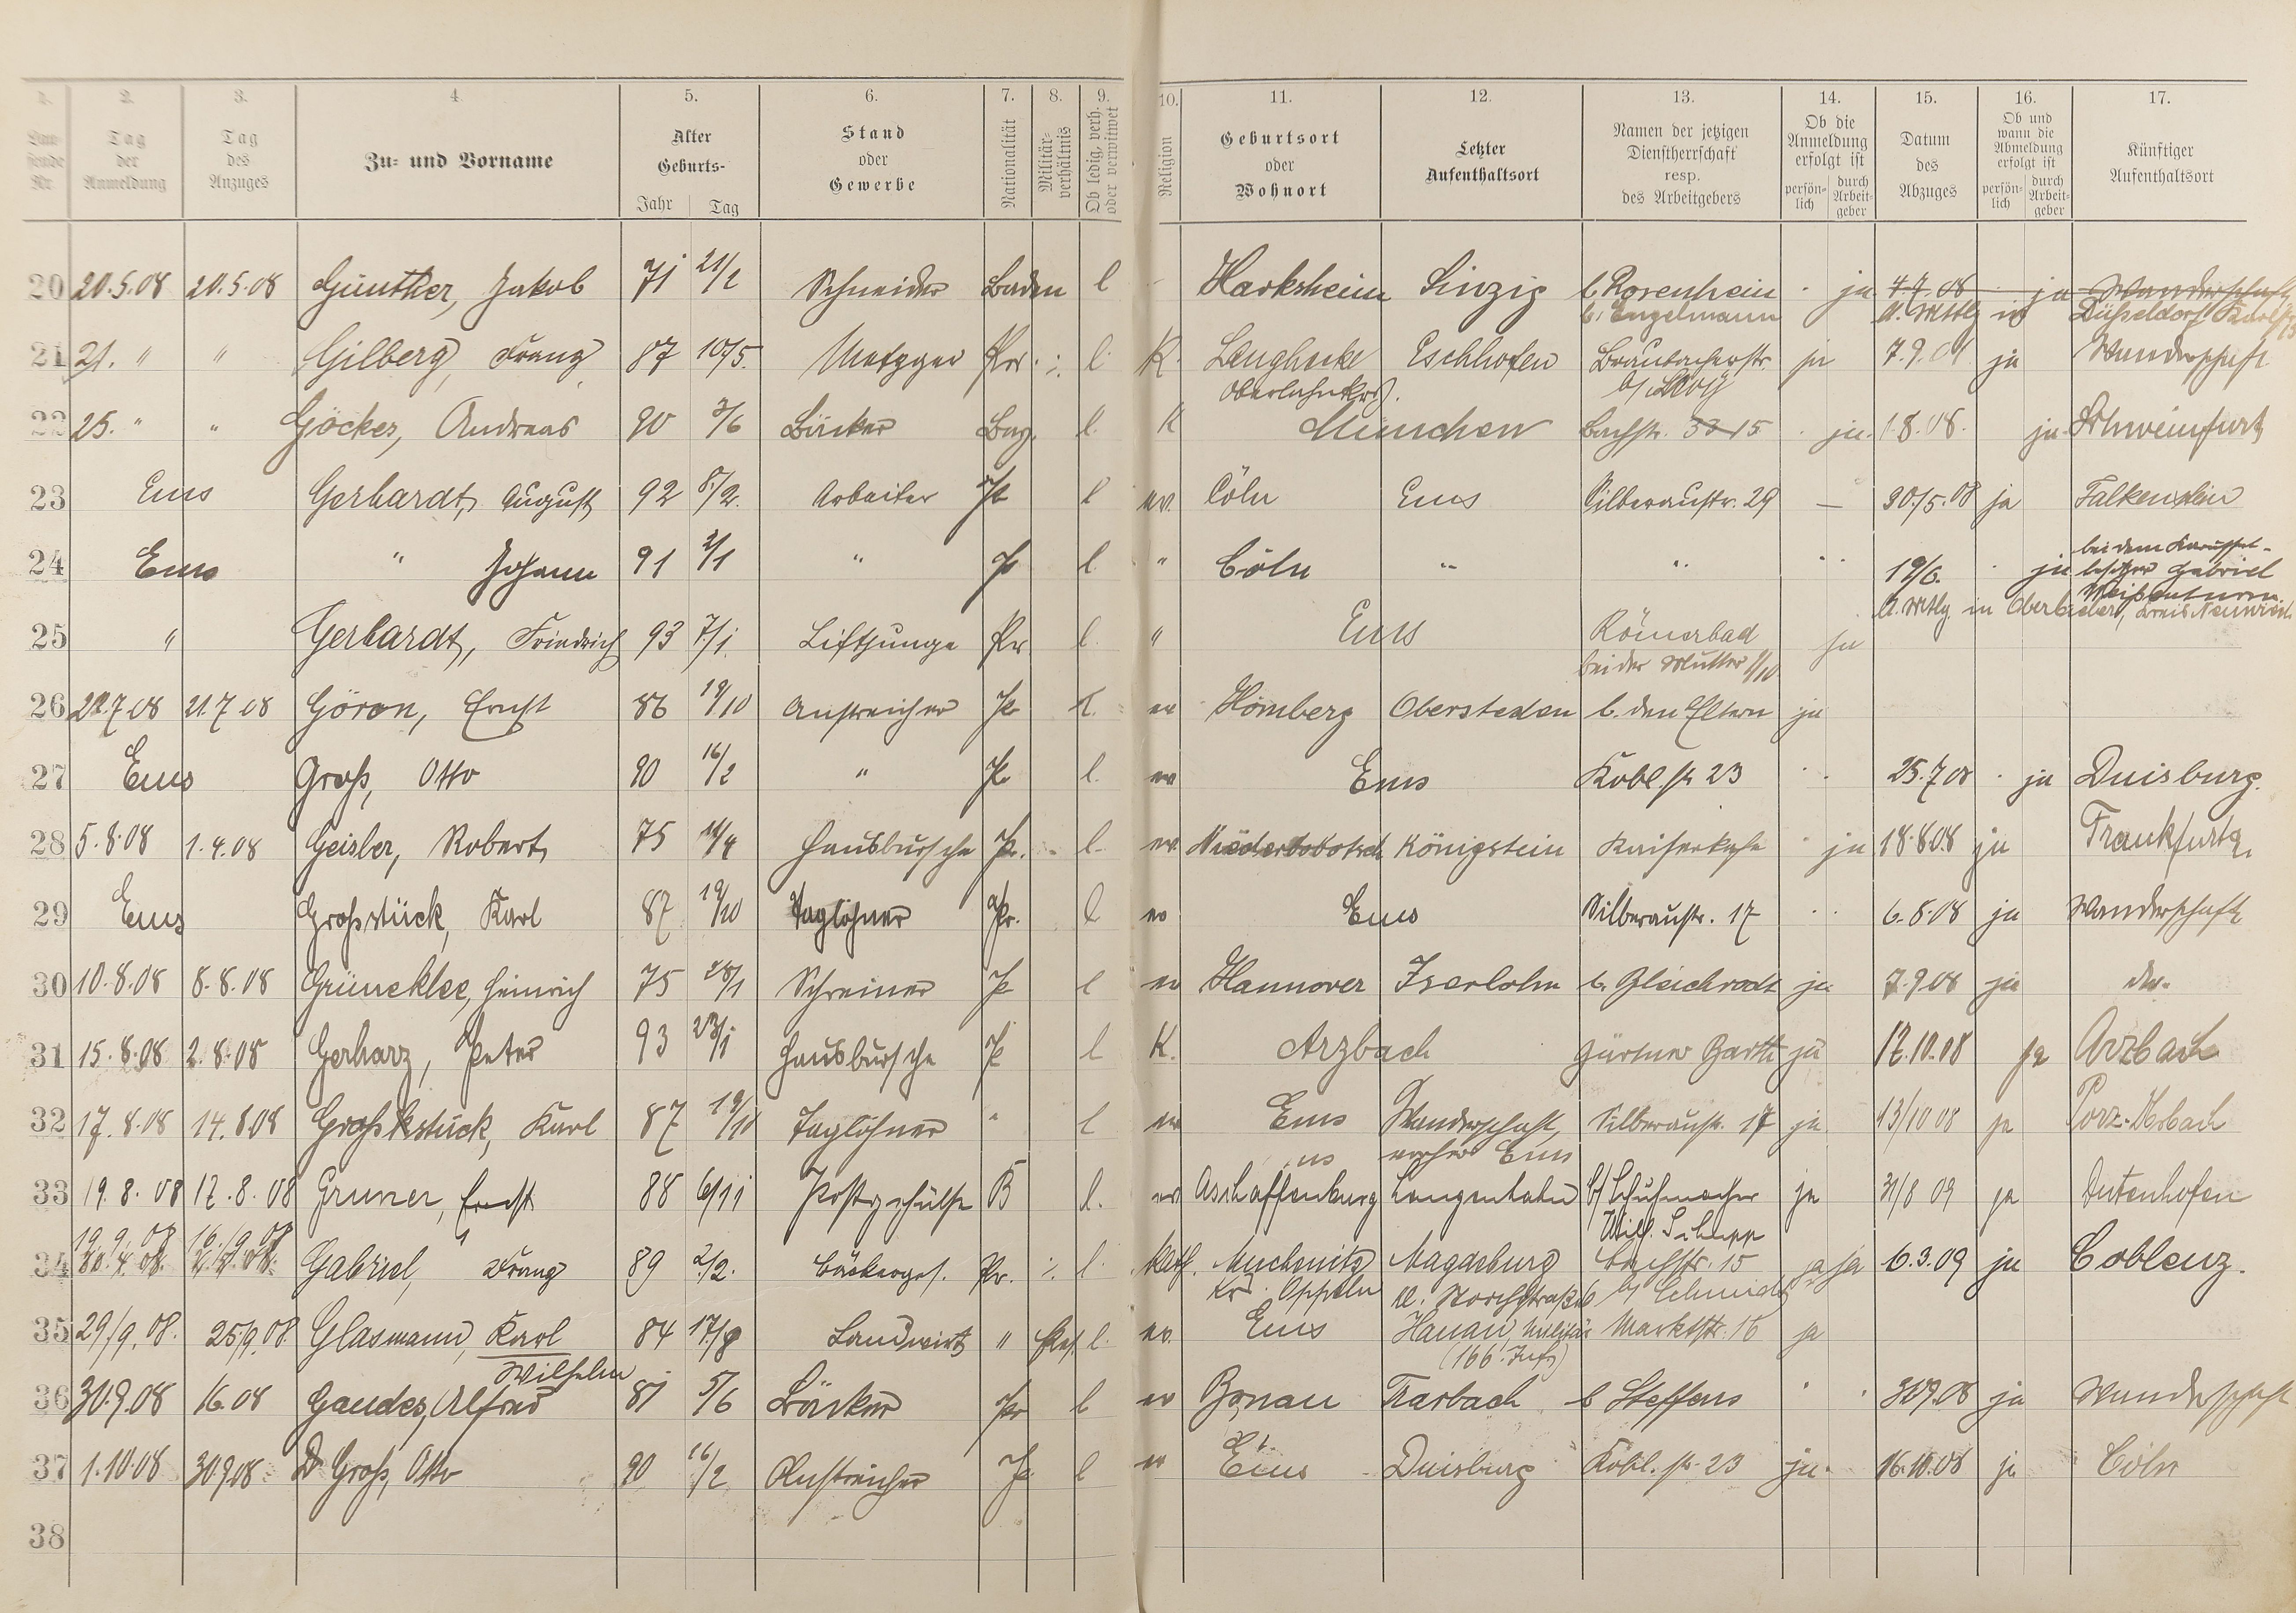 1. 2. 3. 4. 5. 6. 7. 8. 9. 10. 11. 12. 13. 14. 15. 16. 17.
Laufende Nr.
Tag der Anmeldung
Tag des Anzuges
Zu- und Vorname
Alter Geburts- Jahr Tag
Stand oder Gewerbe
Nationalität
Militärverhältnis
Ob ledig, verh. oder verwitwet
Religion
Geburtsort oder Wohnort
Letzter Aufenthaltsort
Namen der jetzigen Dienstherrschaft resp. des Arbeitgebers
Ob die Anmeldung erfolgt ist persönlich durch Arbeitgeber
Datum des Abzuges
Ob und wann die Abmeldung erfolgt ist persönlich durch Arbeitgeber
Künftiger Aufenthaltsort
20 20.5.08 20.5.08 Günther, Jakob 71 21/2 Schneider Baden l Harksheim Sinzig b. Rosenhein ja 4.7.08 ja Wanderschaft
b. Engelmann Düsseldorf
21 21. " " Gilberg, Franz 87 10/5. Metzger Pr. ·/. l. K. Langhecke Eschhofen Braubacherstr. ja 7.9. ja Wanderschaft
Oberlahnkrs. b/ Levy
22 25. " " Göcker, Andreas 90 3/6 Bäcker Bay. l. K München Bachstr. 33 15 ja. 1.8.08. ja. Schweinfurt
23 Ems Gerhardt, August 92 5/2. Arbeiter Pr l ev. Cöln Ems Silberaustr. 29 — 30/5.08 ja Falkenstein
24 Ems " Johann 91 2/1 " Pr l. " Cöln " " 19/6. ja bei dem Karussel-
besitzer Gabriel
Weißenturm.
A. Mtlg. in Oberbieber, Kreis Neuwied
25 " Gerhardt, Friedrich 93 7/1. Liftjunge Pr l. " Ems Römerbad ja
bei der Mutter 1/10
26 22.7.08 21.7.08 Göron, Ernst 86 19/10 Anstreicher Pr ev Homberg Obersteden b. den Eltern ja
27 Ems Groß, Otto 90 16/2 " Pr l. ev Ems Kobl. str 23 25.7.08 ja Duisburg.
28 5.8.08 1.4.08 Geisler, Robert 75 14/4 Hausbursche Pr. l. ev. Königstein ja 18.8.08 ja Frankfurt a.
29 Ems Großstück, Karl 87 19/10 Taglöhner Pr. l ev Ems Silberaustr. 17 6.8.08 ja Wanderschaft
30 10.8.08 8.8.08 Grüneklee, Heinrich 75 28/1 Schreiner Pr l ev Hannover Iserlohn b. Gleichrodt ja 7.9.08 ja do.
31 15.8.08 2.8.08 Gerharz, Peter 93 23/1 Hausbursche Pr l K. Arzbach Gärtner Barth ja 12.10.08 ja Arzbach
32 17.8.08 14.8.08 Großkstück, Karl 87 19/10 Taglöhner " l ev Ems Wanderschaft, Silberaustr. 17 ja 13/10 08 ja
vorher Ems
33 19.8.08 12.8.08 Gruner, Ernst 88 6/11 Postgehülfe B l. ev Aschaffenburg Langenhahn b/ Schuhmacher ja 31/8 09 ja Dutenhofen
Wilh.
19.9.08 16.9.08
34 Gabriel, Franz 89 2/2. Bäckerges. Pr. ·/. l. kath. Magdeburg Bachstr. 15 ja ja 6.3.09 ja Coblenz.
Kr. Oppeln kl. Storchstraße 6 b/ Schmidt
35 29/9.08. 25/9.08 Glasmann, Karl 84 17/8 Landwirt " Res. l. ev. Ems Hanau, Militär Marktstr. 16 ja
Wilhelm (166. Inf.)
36 30.9.08 16.08 Gaudes, Alfred 81 5/6 Bäcker Pr l ev Trarbach b Steffens 30.9.08 ja Wanderschaft
37 1.10.08 30.9.08 Groß, Otto 90 16/2 Anstreicher Pr l ev Ems Duisburg Kobl. str. 23 ja. 16.10.08 ja Cöln
38